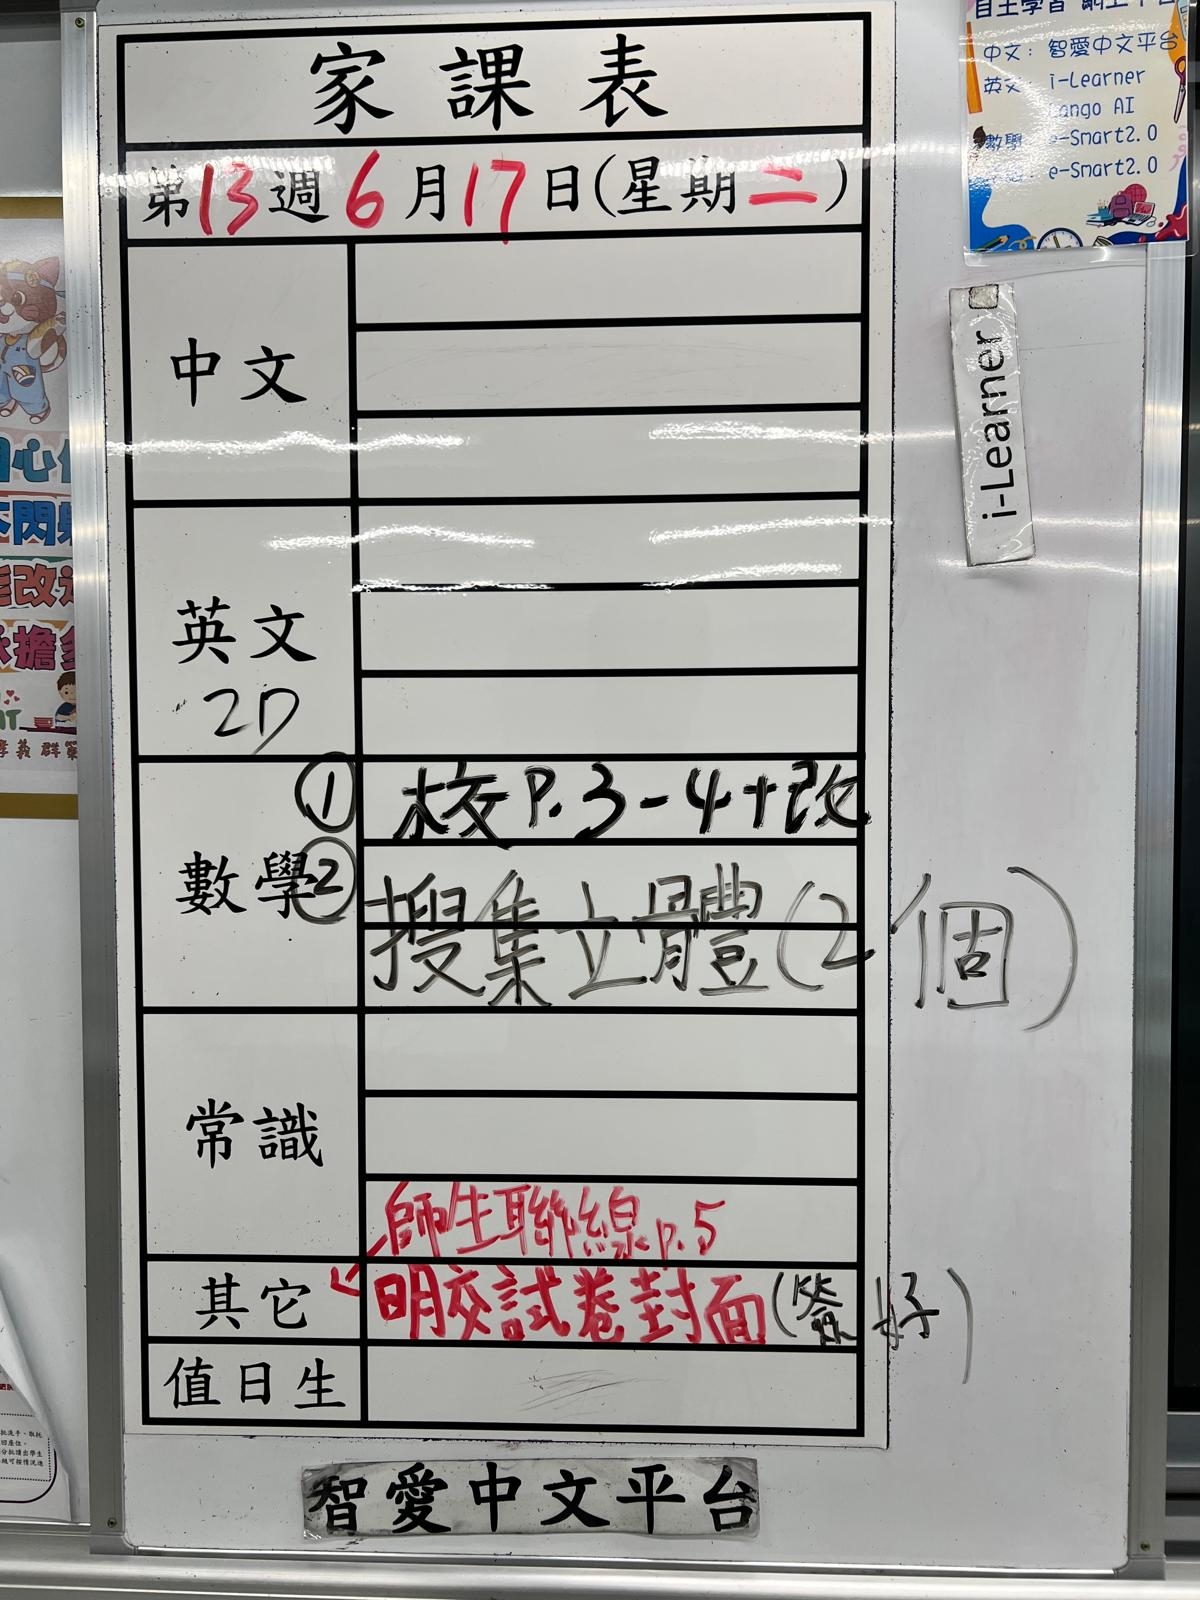 家課表
第13週6月17日(星期二)
中文
英文
2D
數學
① 校P.3-4+改
② 搜集立體(2個)
常識
師生聯線p.5
其它
明交試卷封面(簽好)
值日生
智愛中文平台
自主學習 網上平台
中文: 智愛中文平台
英文: i-Learner
ango AI
數學: e-Smart2.0
e-Smart2.0
i-Learner